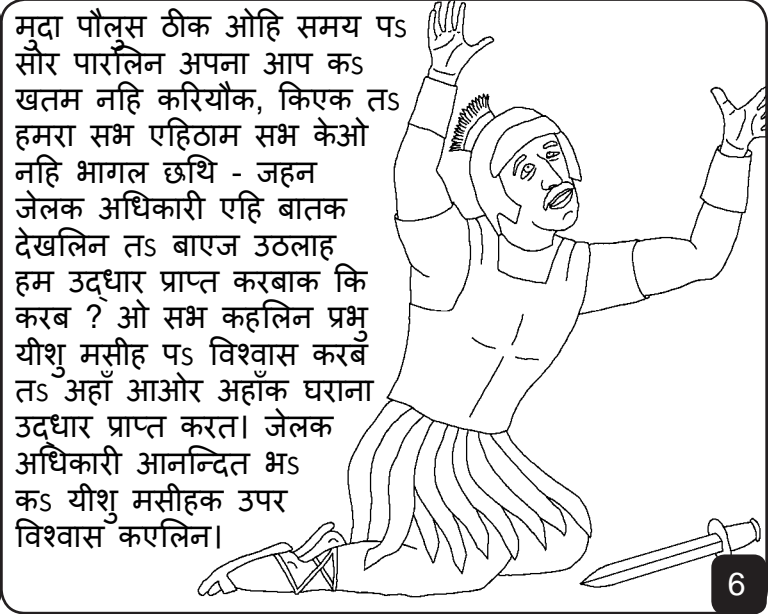 मुदा पौलुस ठीक ओहि समय पऽ
सोर पारलिन अपना आप कऽ
खतम नहि करियौक, किएक तऽ
हमरा सभ एहिठाम सभ केओ
नहि भागल छथि - जहन
जेलक अधिकारी एहि बातक
देखलिन तऽ बाएज उठलाह
हम उद्धार प्राप्त करबाक कि
करब ? ओ सभ कहलिन प्रभु
यीशु मसीह पऽ विश्वास करब
तऽ अहाँ आओर अहाँक घराना
उद्धार प्राप्त करत। जेलक
अधिकारी आनन्दित भऽ
कऽ यीशु मसीहक उपर
विश्वास कएलिन।
6